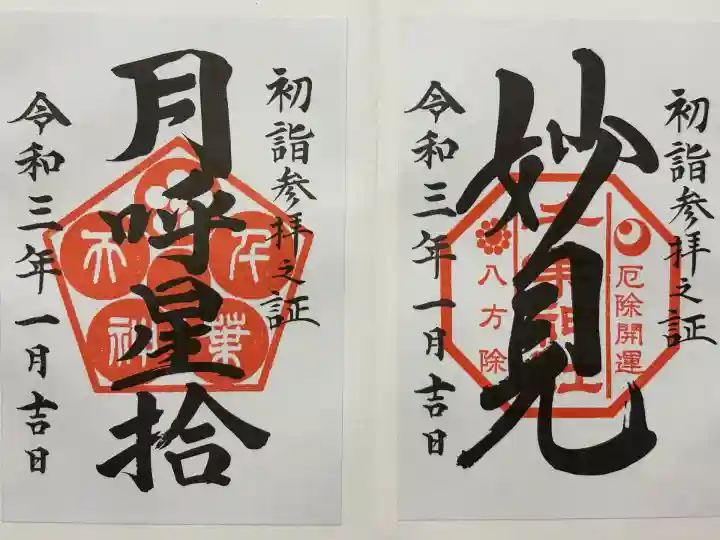 初詣参拝之証
妙見
厄除開運
八方除
令和三年一月吉日
初詣参拝之証
月呼星拾
千葉
神
令和三年一月吉日